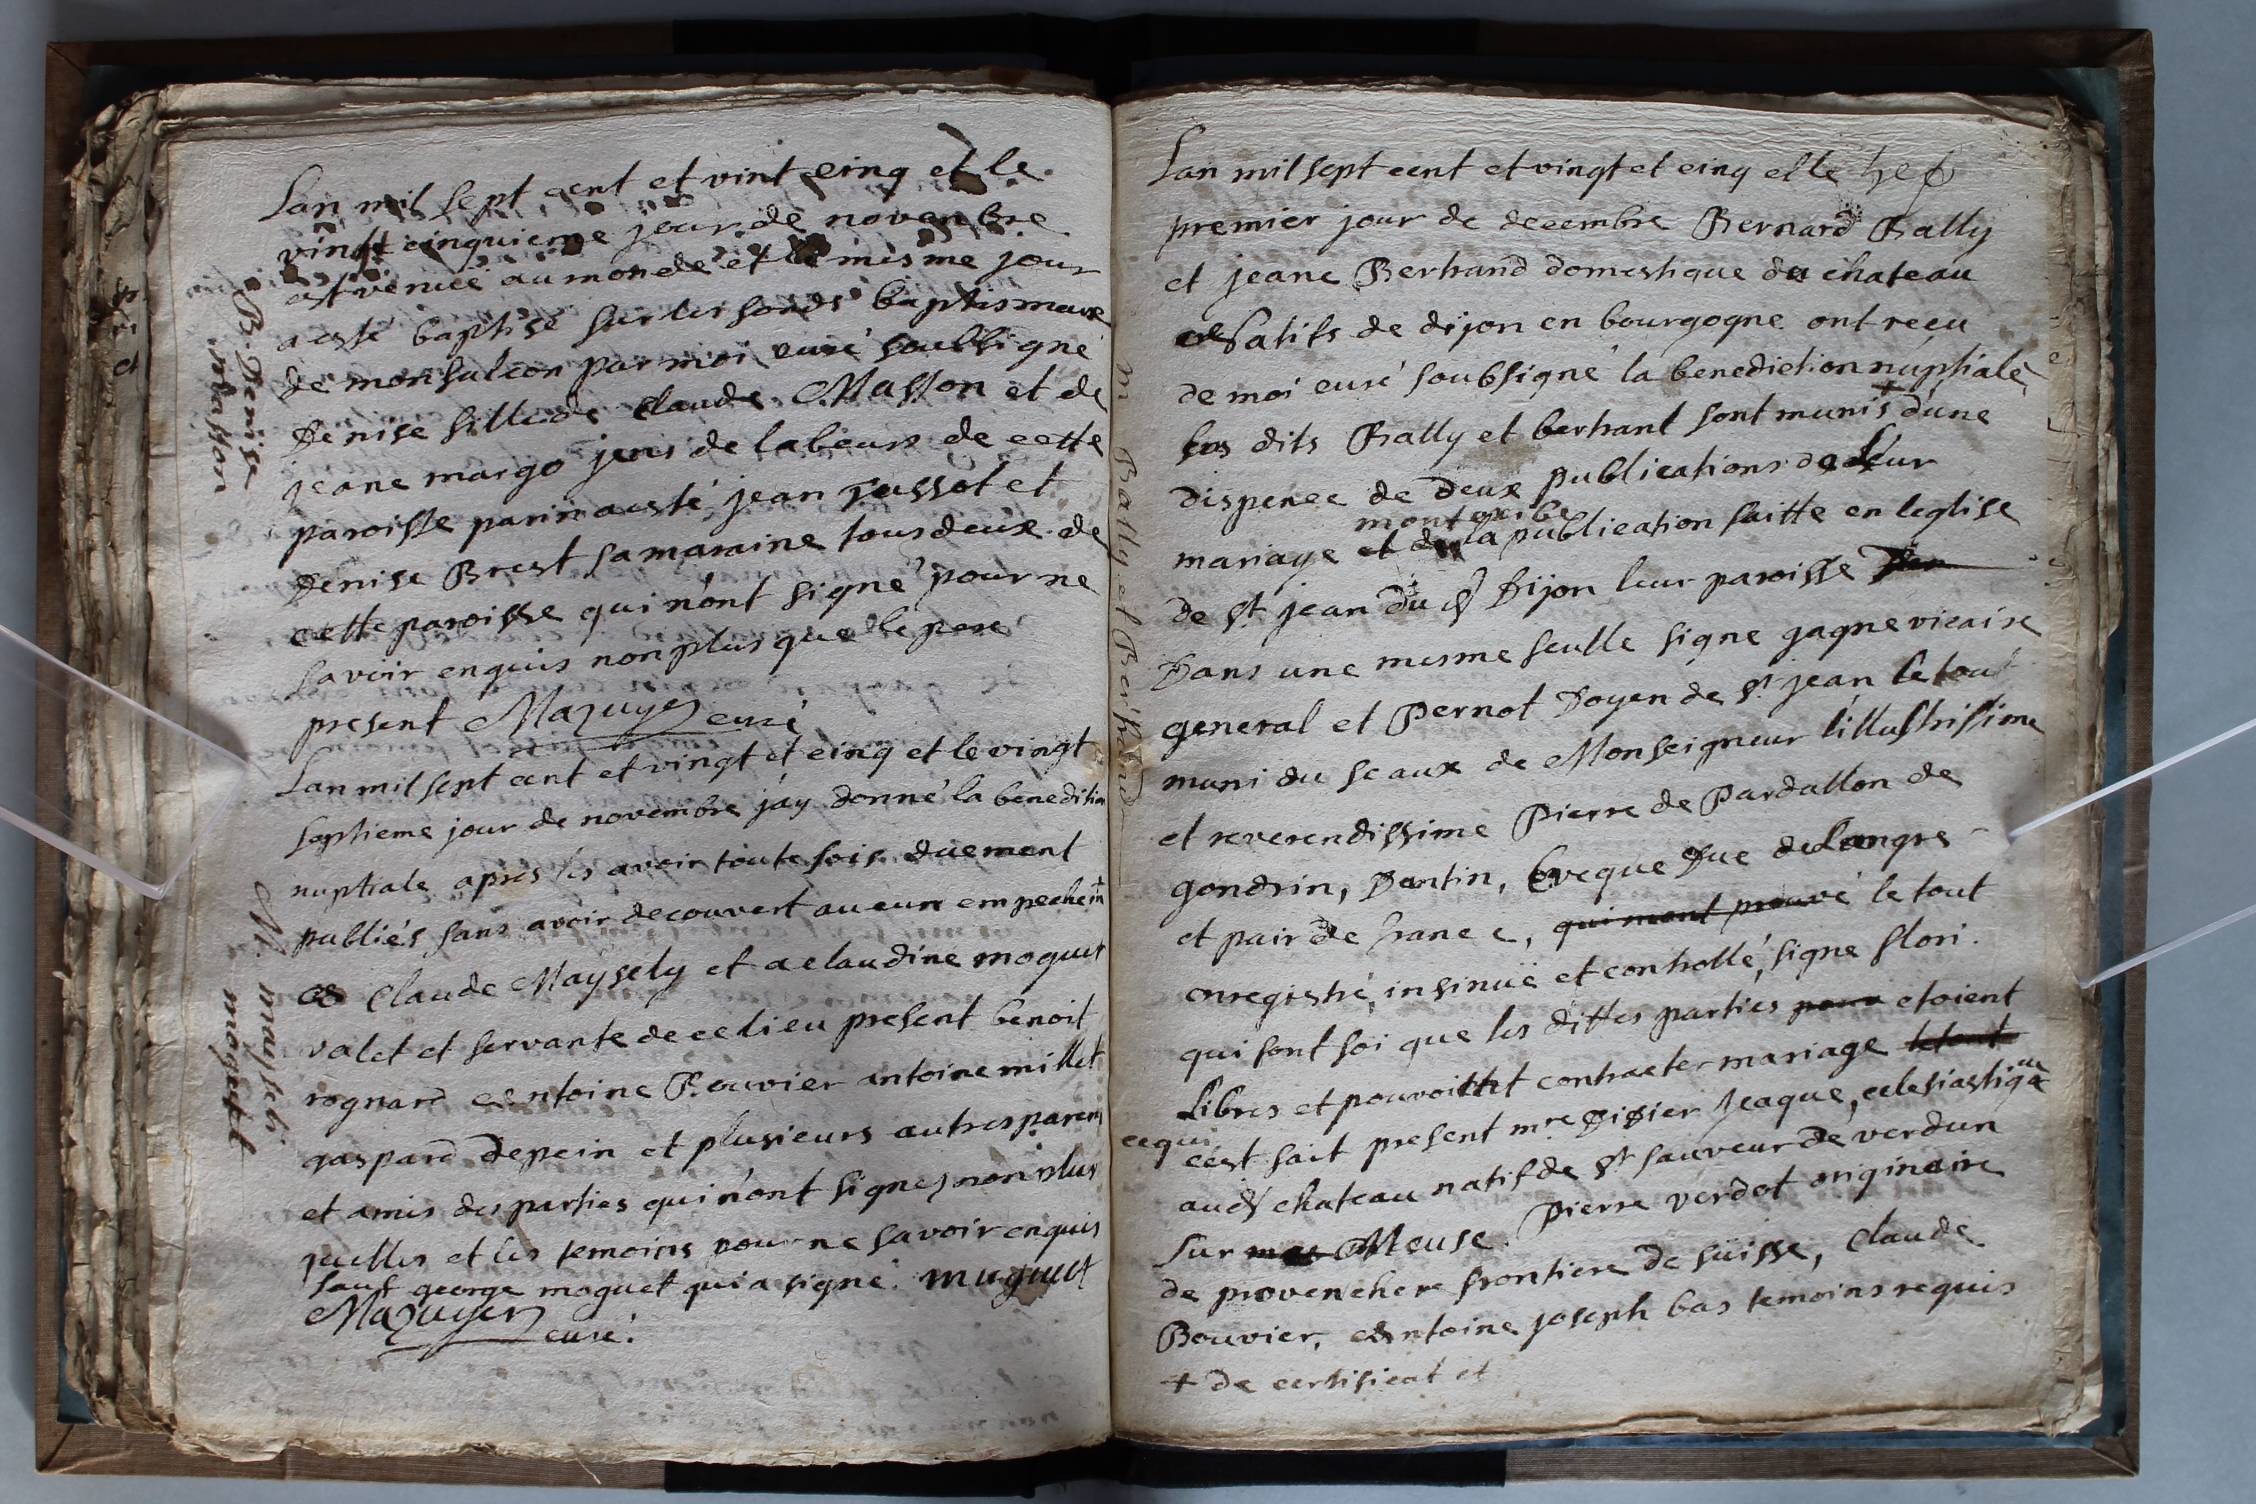 Lan mil sept cent et vint cinq et le
vingt cinquieme jour de novembre
est venüe au monde et le misme jour
a esté baptisé sur les fonds baptismaux
de monfalcon par moi curé soubsigné
Denise fille de Claude Masson et de
jeane margo jens de labeur de cette
paroisse parin a esté jean jussot et
Denise Brest sa maraine tous deux de
cette paroisse qui n'ont signé pour ne
savoir enquis non plus que le pere
present Mazuyer curé
B. Denise
masson
Lan mil sept cent et vingt et cinq et le vingt
septieme jour de novembre j'ay donné la benedition
nuptiale apres les avoir toute fois duement
publiés sans avoir decouvert aucun empechemt
a Claude Maysely et a claudine moguet
valet et servante de ce lieu present benoit
rognard antoine Bouvier antoine millet
gaspard depein et plusieurs autres parens
et amis des parties qui n'ont signez non plus
qu'elles et les temoins pour ne savoir enquis
sauf george moguet qui a signé. muguet
Mazuyer
curé.
M. mayseli
moguet
Lan mil sept cent et vingt et cinq et le
premier jour de decembre Bernard Bally
et jeane Bertrand domestique du chateau
natifs de dijon en bourgogne ont recu
de moi curé soubsigné la benediction nuptiale
les dits Bally et bertrant sont munis + d'une
dispence de deux publications de leur
mont exibe
mariage et de la publication faitte en leglise
de St jean du d Dijon leur paroisse
Dans une mesme feulle signe gagne vicaire
general et Pernot Doyen de St jean le tout
muni du sceaux de Monseigneur l'illustrissime
et reverendissime Pierre de Pardallon de
gondrin, Dantin, Eveque Duc de Langres
et pair de france, qui mont prouvé le tout
enregistré, insinuë et controllé, signe flori.
qui font foi que les dittes parties pour etoient
Libres et pouvoittt contracter mariage le tout
ce qui
cest fait present mre Didier Jeaque, eclesiastique
aud chateau natif de St sauveur de verdun
sur Meuse. Pierre verdot originaire
de provenchere frontiere de süisse, Claude
Bouvier, antoine joseph bas temoins requis
+ de certificat et
m Bally et Bertrand